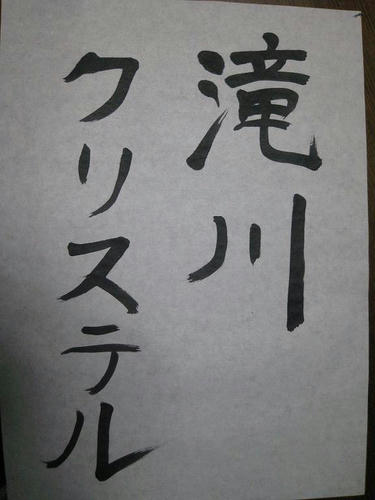 滝川
クリステル